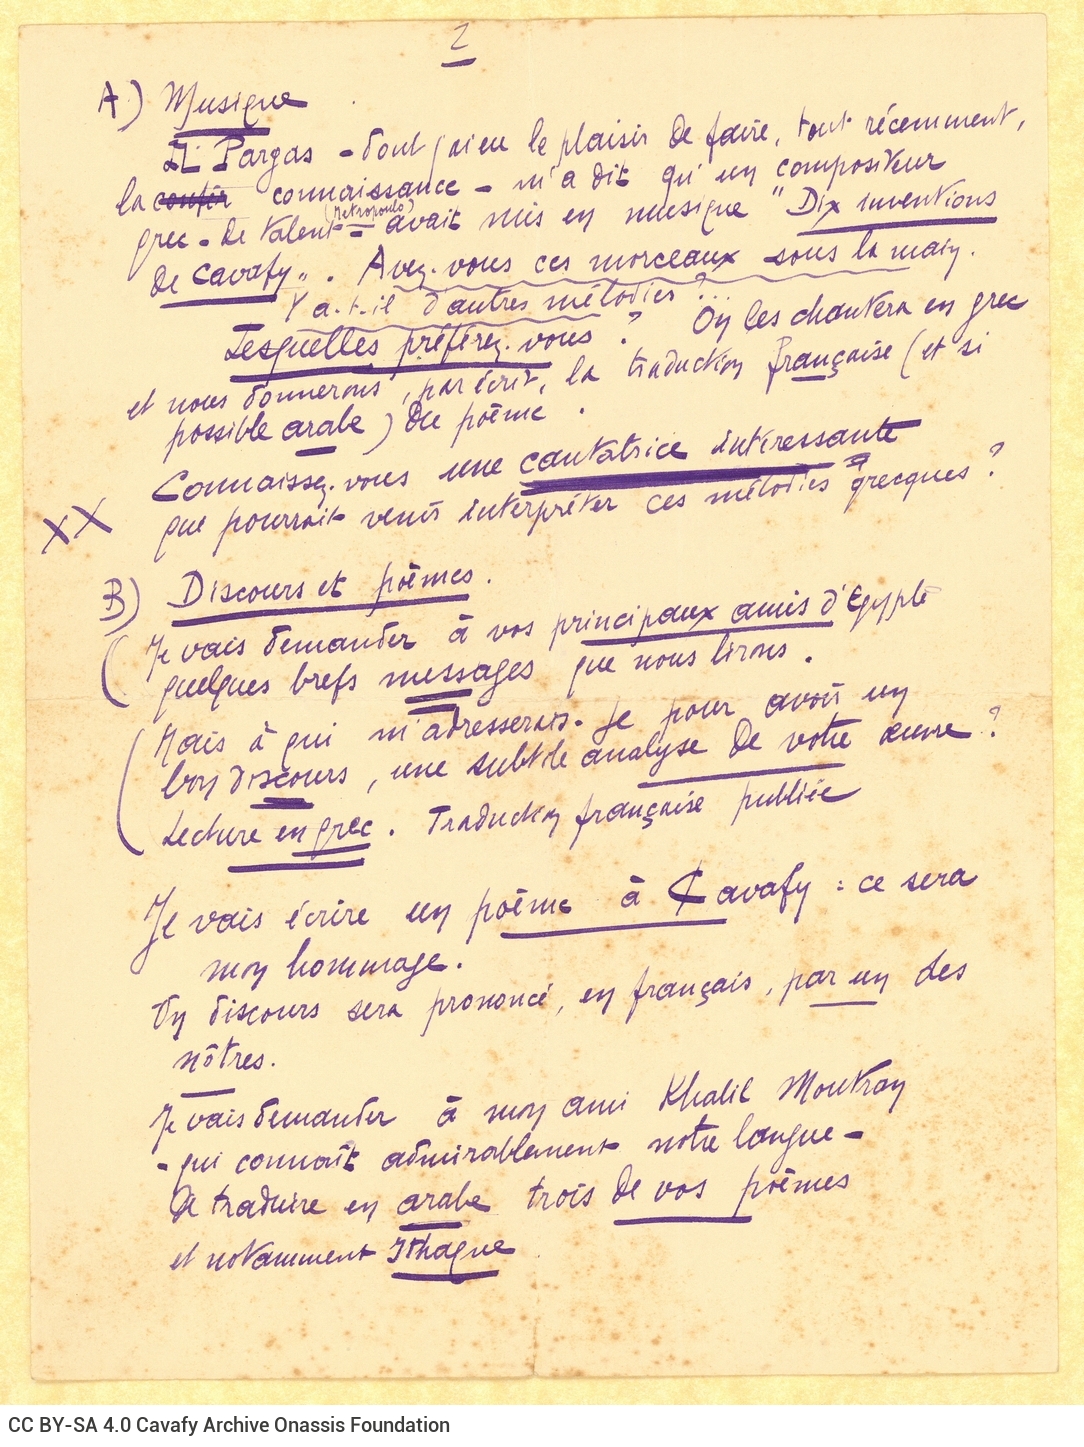 2
A) Musique
Mr Pargas - dont j'ai eu le plaisir de faire, tout récemment,
la connaissance - m'a dit qu'un compositeur
grec - de talent - (Metropoulo) avait mis en musique "Dix inventions
de Cavafy". Avez-vous ces morceaux sous la main.
Y a-t-il d'autres mélodies ?...
Lesquelles préférez-vous ? On les chantera en grec
et nous donnerons, par écrit, la traduction française (et si
possible arabe) du poème.
Connaissez-vous une cantatrice intéressante
XX que pourrait venir interpréter ces mélodies grecques ?
B) Discours et poèmes.
Je vais demander à vos principaux amis d'Egypte
quelques brefs messages que nous lirons.
Mais à qui m'adresserais-je pour avoir un
bon discours, une subtile analyse de votre œuvre ?
Lecture en grec. Traduction française publiée
Je vais écrire un poème à Cavafy : ce sera
mon hommage.
Un discours sera prononcé, en français, par un des
nôtres.
Je vais demander à mon ami Khalil Moutran
- qui connaît admirablement notre langue -
de traduire en arabe trois de vos poèmes
et notamment Ithaque
CC BY-SA 4.0 Cavafy Archive Onassis Foundation